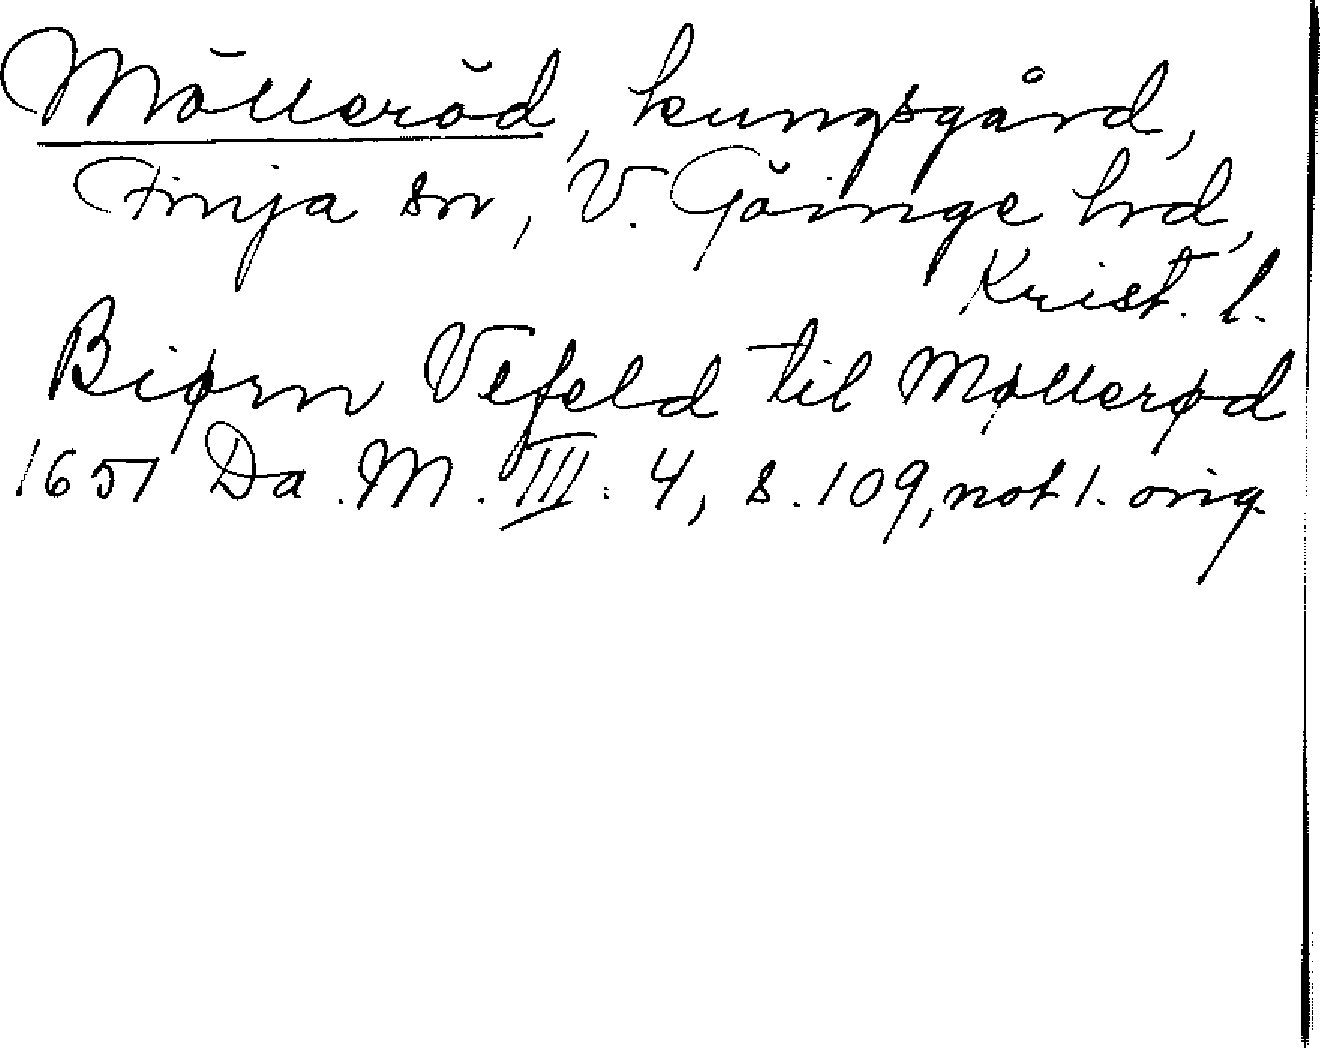 Mölleröd, kungsgård,
Finja sn, V. Göinge hrd,
Krist. l.
Biørn Vefeld til Møllerød
1651 Da. M. III: 4, s. 109, not 1. orig.